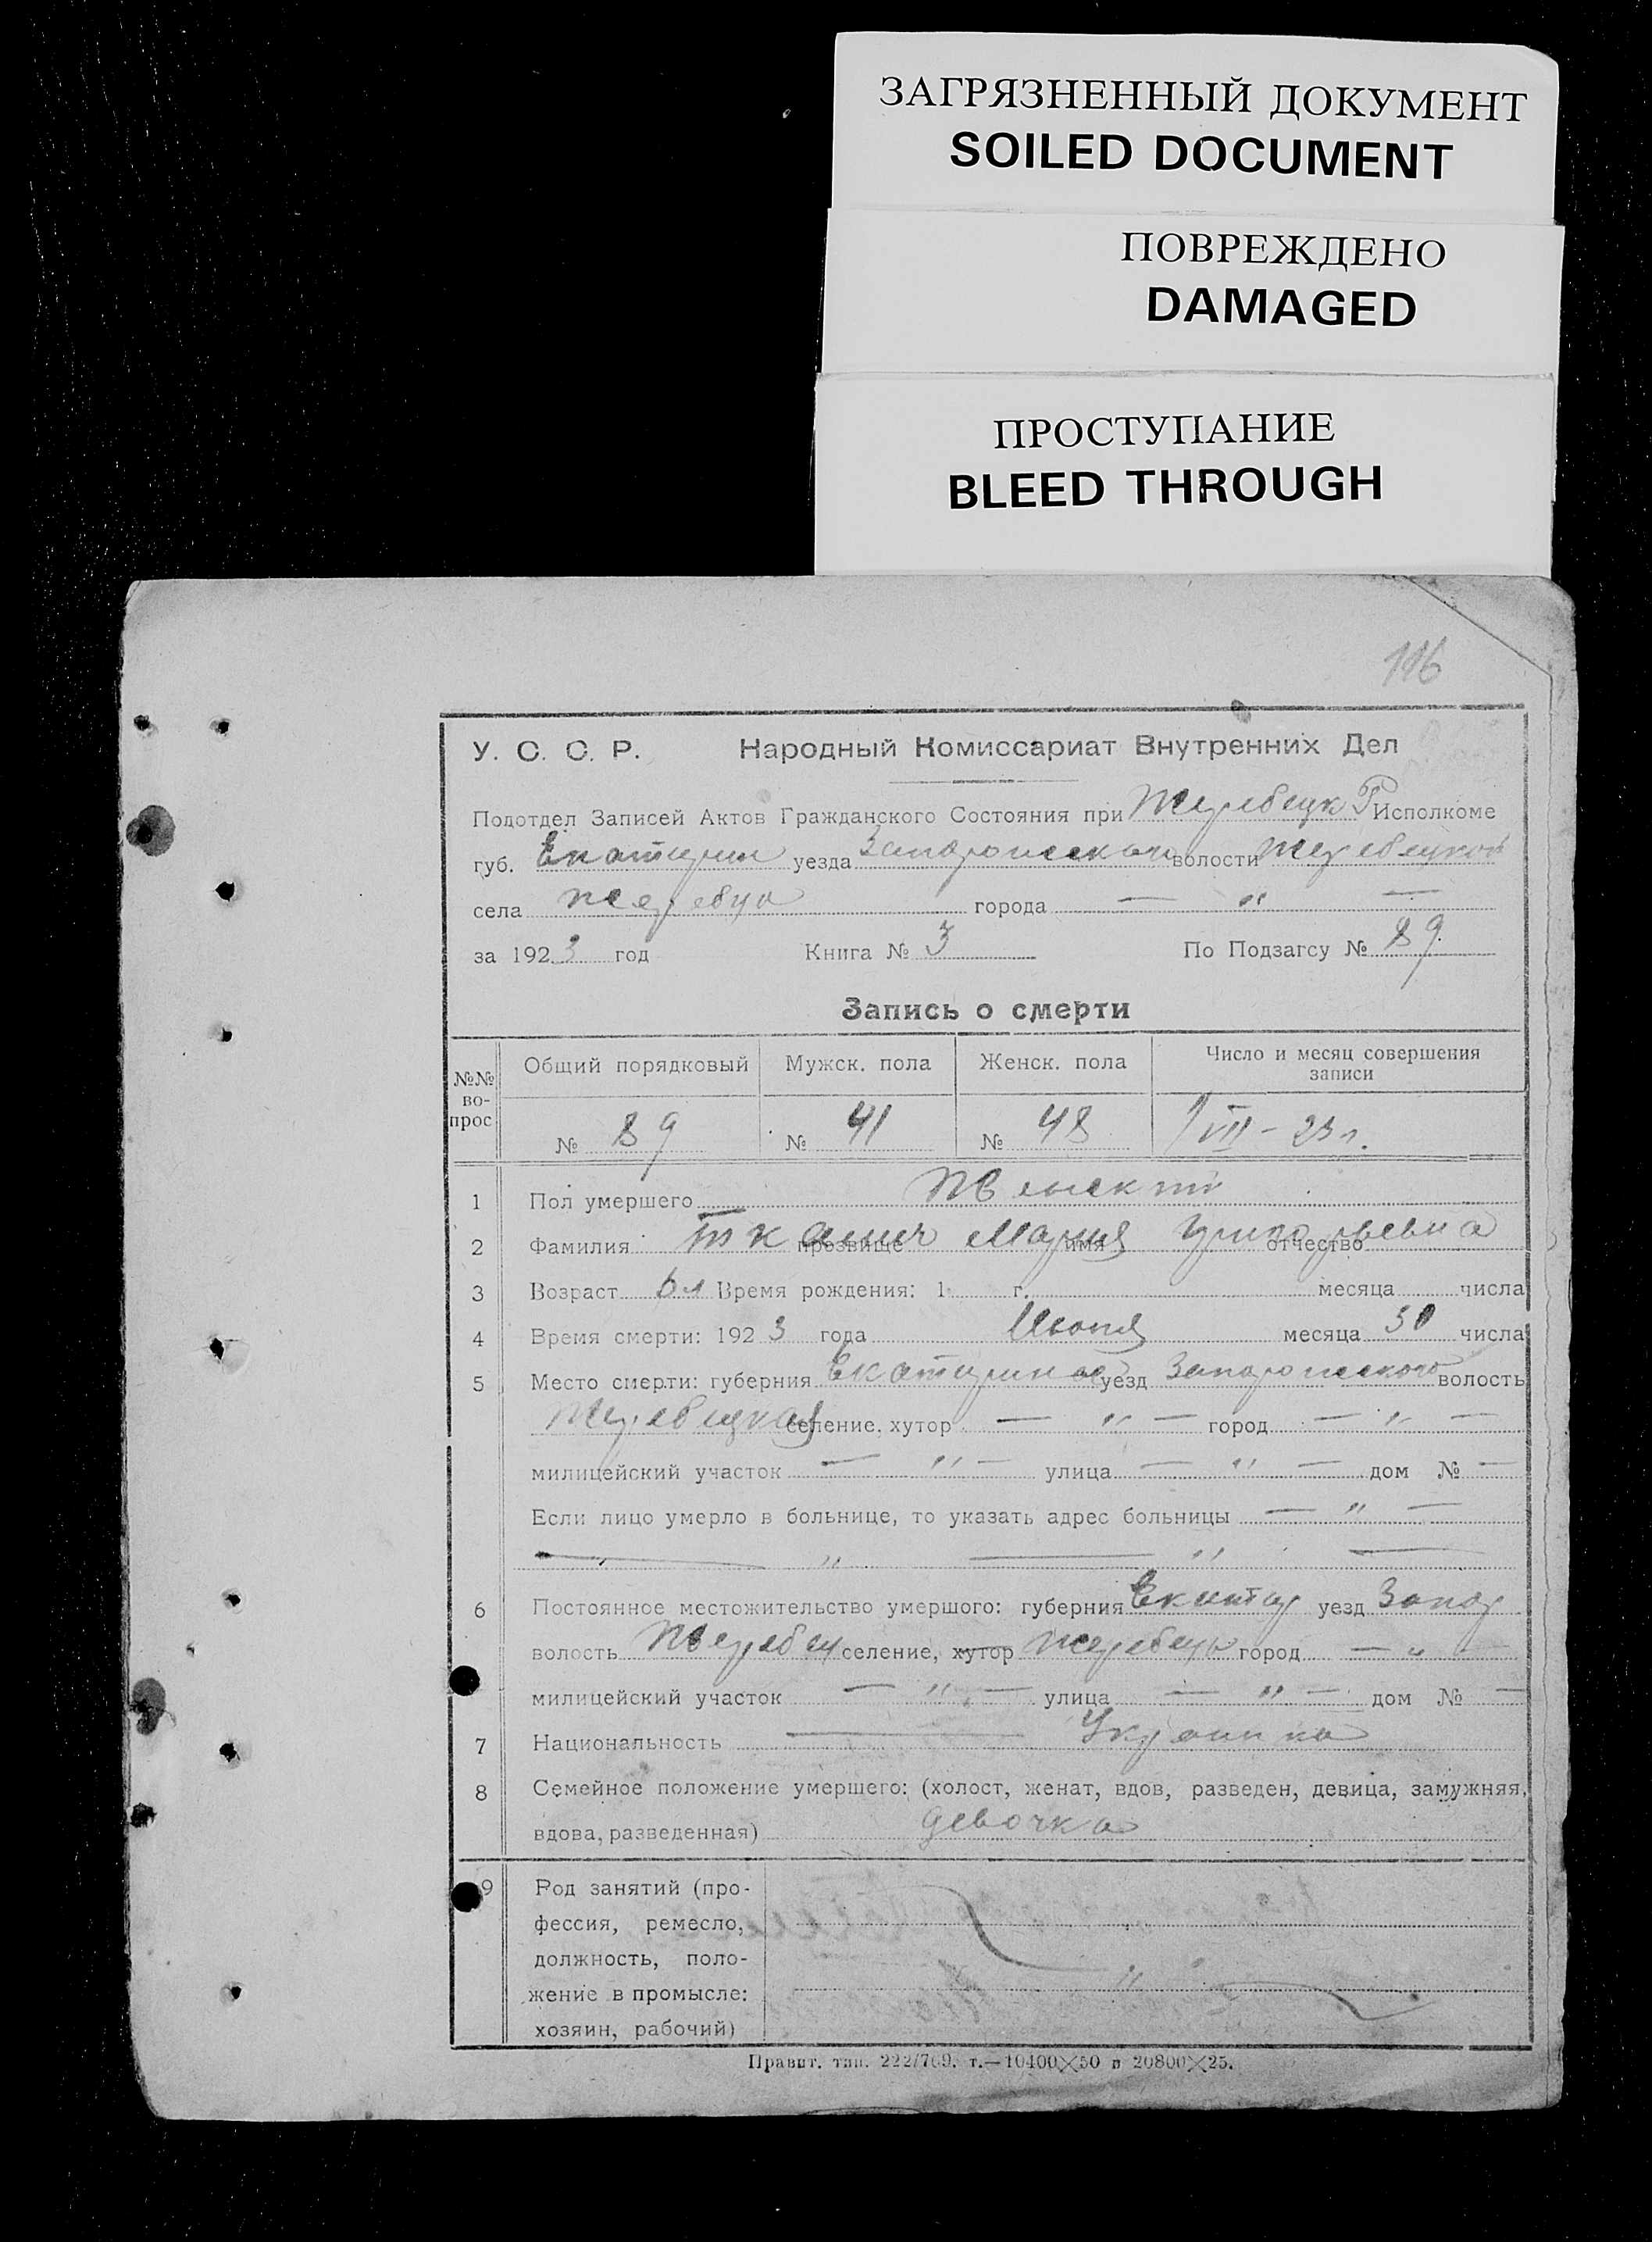 ЗАГРЯЗНЕННЫЙ ДОКУМЕНТ
SOILED DOCUMENT
ПОВРЕЖДЕНО
DAMAGED
ПРОСТУПАНИЕ
BLEED THROUGH
116
У. С. С. Р. Народный Комиссариат Внутренних Дел
Подотдел Записей Актов Гражданского Состояния при Жеребецк Р Исполкоме
губ. Екатерин уезда Запорожского волости Жеребецкой
села Жеребца города — " —
за 1923 год Книга № 3 По Подзагсу № 89
Запись о смерти
№№ вопрос Общий порядковый Мужск. пола Женск. пола Число и месяц совершения записи
№ 89 № 41 № 48 1/VII - 23 г.
1 Пол умершего Женский
2 Фамилия Тканич прозвище Мария имя Григорьевна отчество
3 Возраст 6 л Время рождения: 1 г. месяца числа
4 Время смерти: 1923 года месяца 30 числа
5 Место смерти: губерния Екатерин уезд Запорожского волость
Жеребецкая селение, хутор — " — город — " —
милицейский участок — " — улица — " — дом № —
Если лицо умерло в больнице, то указать адрес больницы — " —
— " — " —
6 Постоянное местожительство умершого: губерния Екатер уезд Запор
волость Жеребец селение, хутор Жеребец город — " —
милицейский участок — " — улица — " — дом № —
7 Национальность — Украинка
8 Семейное положение умершего: (холост, женат, вдов, разведен, девица, замужняя,
вдова, разведенная) девочка
9 Род занятий (про-
фессия, ремесло,
должность, поло-
жение в промысле:
хозяин, рабочий)
Правит. тип. 222/769. т.—10400×50 и 20800×25.